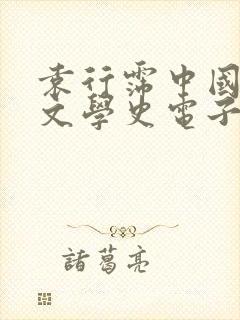 袁行霈中國
文學史電子
諸葛亮